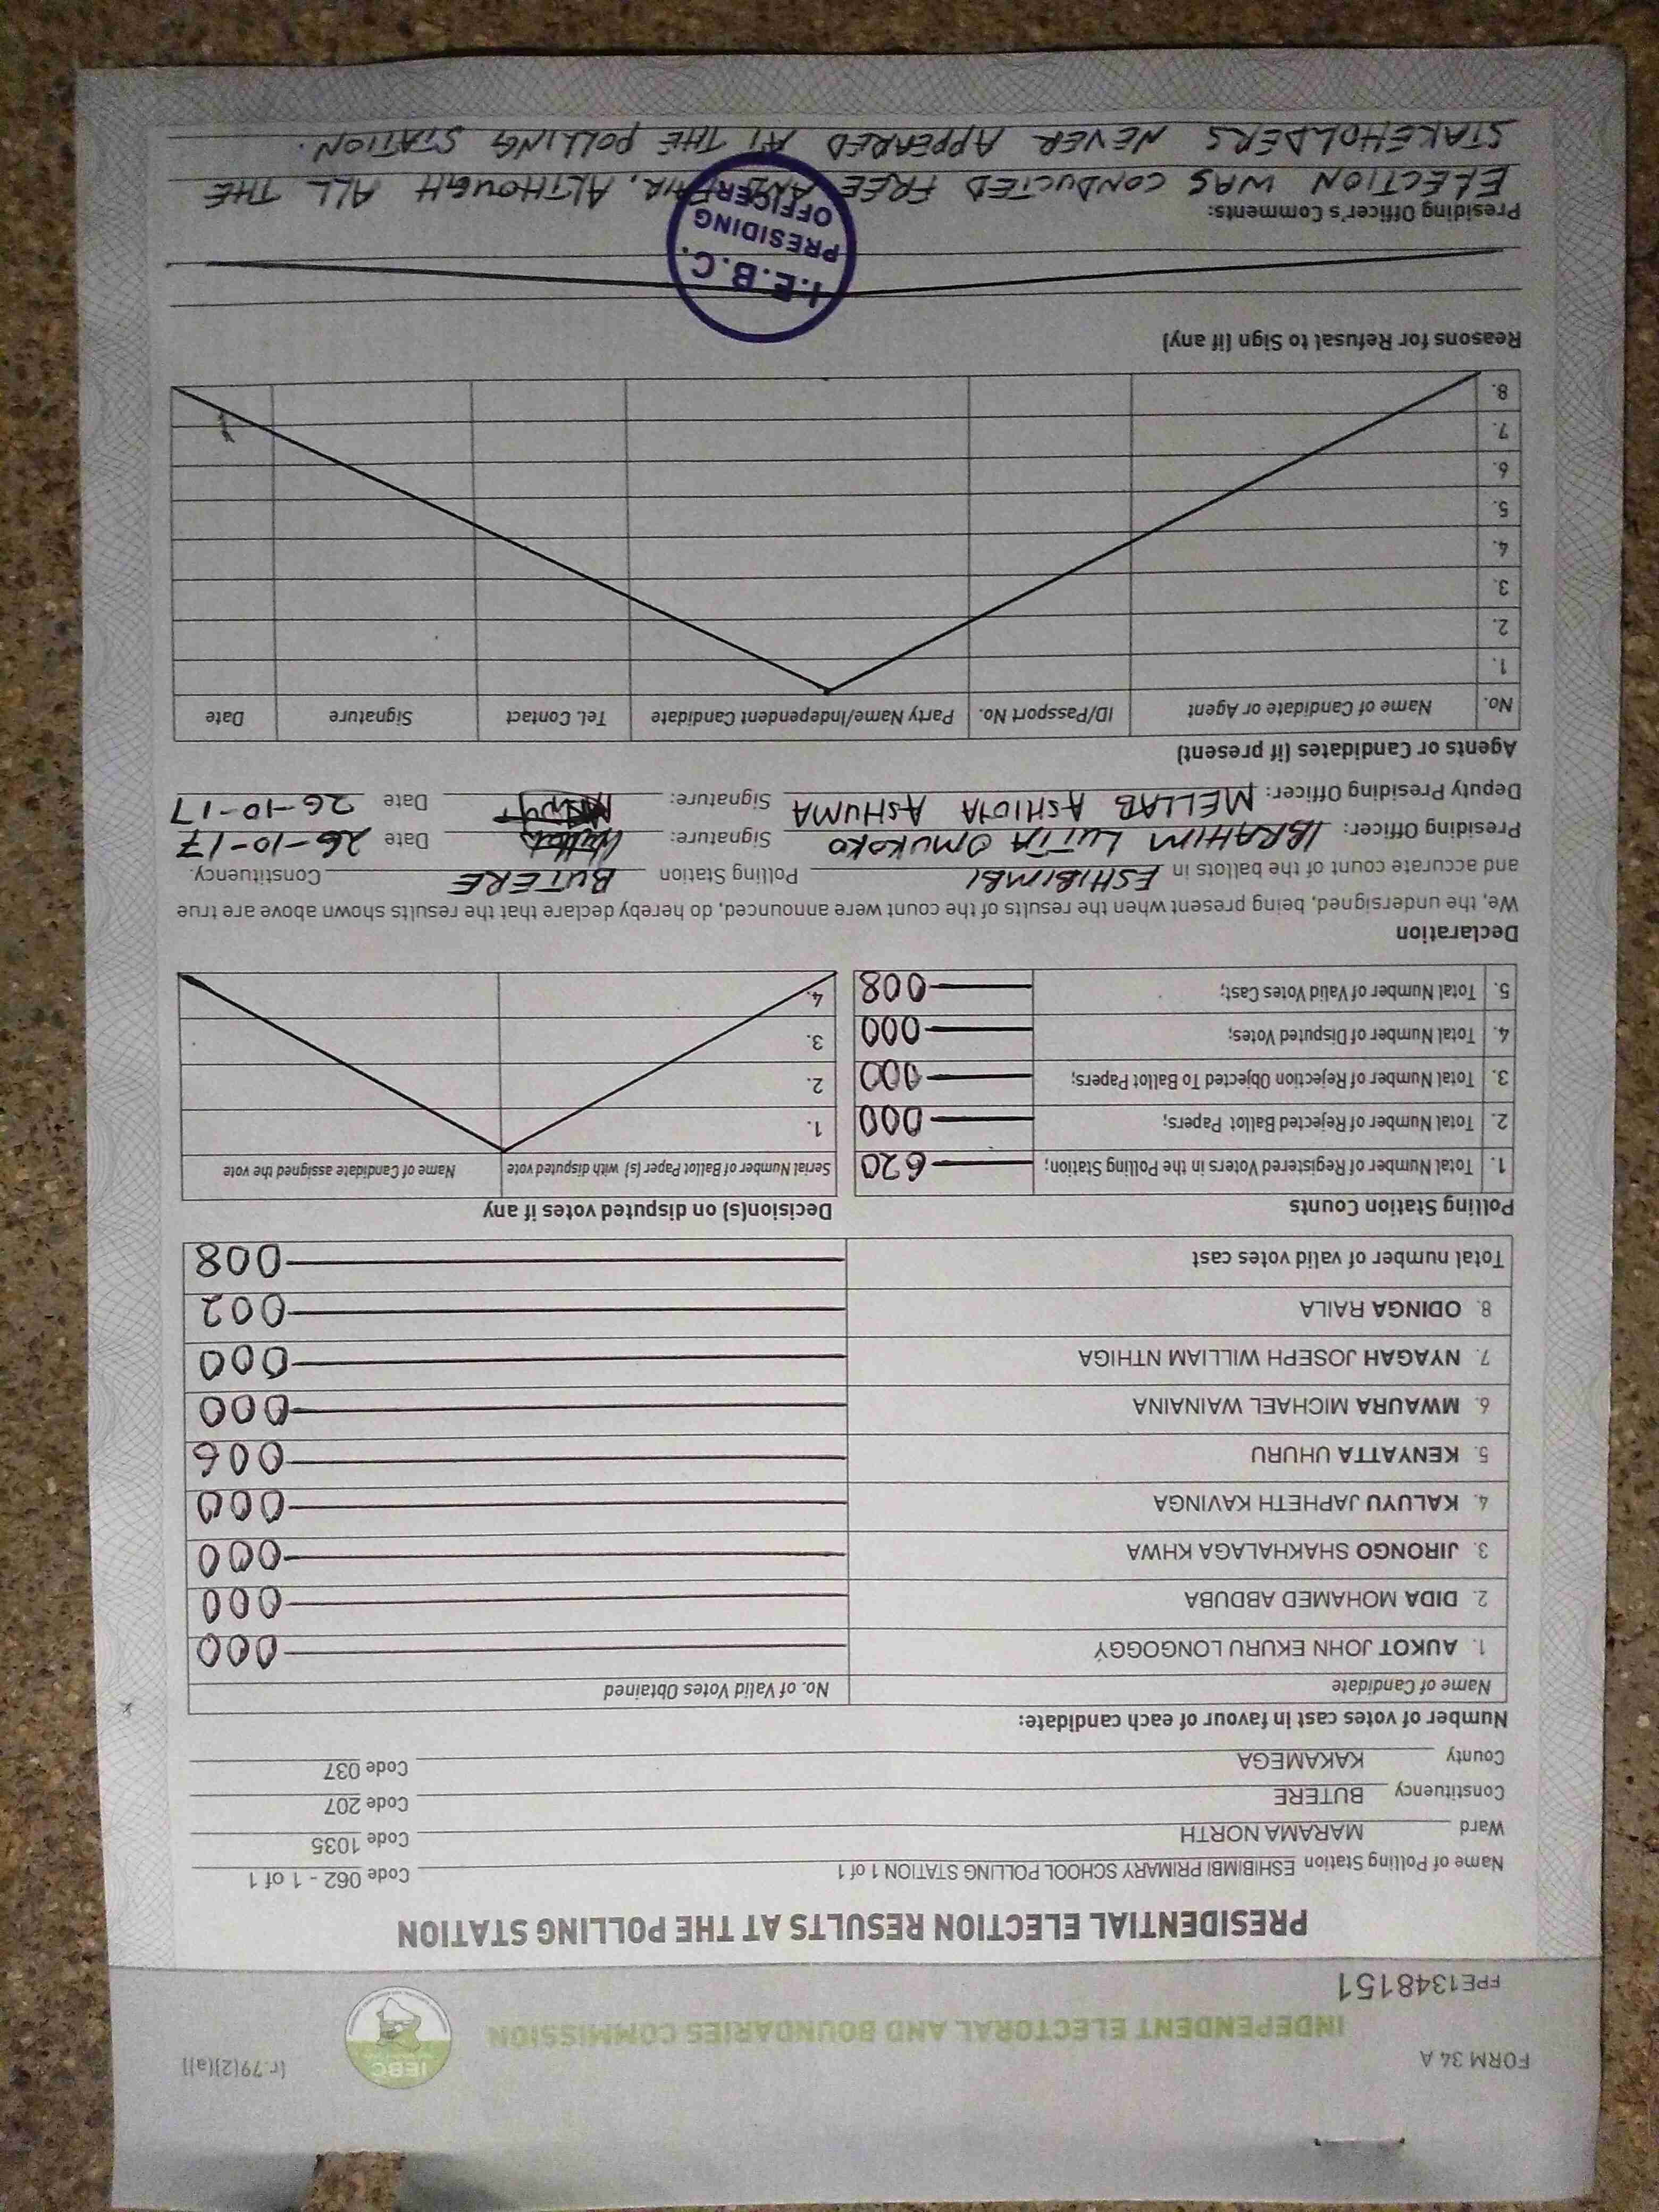 FORM 34 A
(r.79(2)(a))
IEBC
INDEPENDENT ELECTORAL AND BOUNDARIES COMMISSION
FPE1348151
PRESIDENTIAL ELECTION RESULTS AT THE POLLING STATION
Name of Polling Station ESHIBIMBI PRIMARY SCHOOL POLLING STATION 1 of 1 Code 062 - 1 of 1
Ward MARAMA NORTH Code 1035
Constituency BUTERE Code 207
County KAKAMEGA Code 037
Number of votes cast in favour of each candidate:
Name of Candidate No. of Valid Votes Obtained
1. AUKOT JOHN EKURU LONGOGGY 000
2. DIDA MOHAMED ABDUBA 000
3. JIRONGO SHAKHALAGA KHWA 000
4. KALUYU JAPHETH KAVINGA 000
5. KENYATTA UHURU 006
6. MWAURA MICHAEL WAINAINA 000
7. NYAGAH JOSEPH WILLIAM NTHIGA 000
8. ODINGA RAILA 002
Total number of valid votes cast 008
Polling Station Counts
1. Total Number of Registered Voters in the Polling Station; 620
2. Total Number of Rejected Ballot Papers; 000
3. Total Number of Rejection Objected To Ballot Papers; 000
4. Total Number of Disputed Votes; 000
5. Total Number of Valid Votes Cast; 008
Decision(s) on disputed votes if any
Serial Number of Ballot Paper (s) with disputed vote Name of Candidate assigned the vote
1.
2.
3.
4.
Declaration
We, the undersigned, being present when the results of the count were announced, do hereby declare that the results shown above are true
and accurate count of the ballots in ESHIBIMBI Polling Station BUTERE Constituency.
Presiding Officer: IBRAHIM LUTTA OMUKOKO Signature: Date 26-10-17
Deputy Presiding Officer: MELLAB ASHIOYA ASHUMA Signature: Date 26-10-17
Agents or Candidates (if present)
No. Name of Candidate or Agent ID/Passport No. Party Name/Independent Candidate Tel. Contact Signature Date
1.
2.
3.
4.
5.
6.
7.
8.
Reasons for Refusal to Sign (if any)
I.E.B.C.
PRESIDING
OFFICER
Presiding Officer's Comments:
ELECTION WAS CONDUCTED FREE AND FAIR, ALTHOUGH ALL THE
STAKEHOLDERS NEVER APPEARED AT THE POLLING STATION.